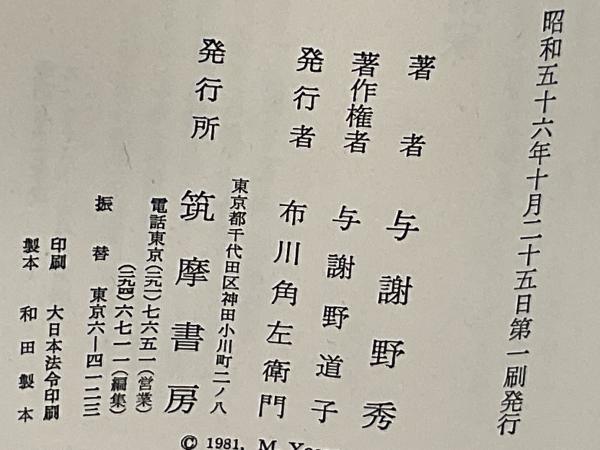 昭和五十六年十月二十五日第一刷発行
著者 与謝野秀
著作権者 与謝野道子
発行者 布川角左衛門
発行所 筑摩書房
東京都千代田区神田小川町二ノ八
電話東京(二九一)七六五一(営業)
(二九四)六七一一(編集)
振替 東京六―四一二三
印刷 大日本法令印刷
製本 和田製本
© 1981, M. Yo